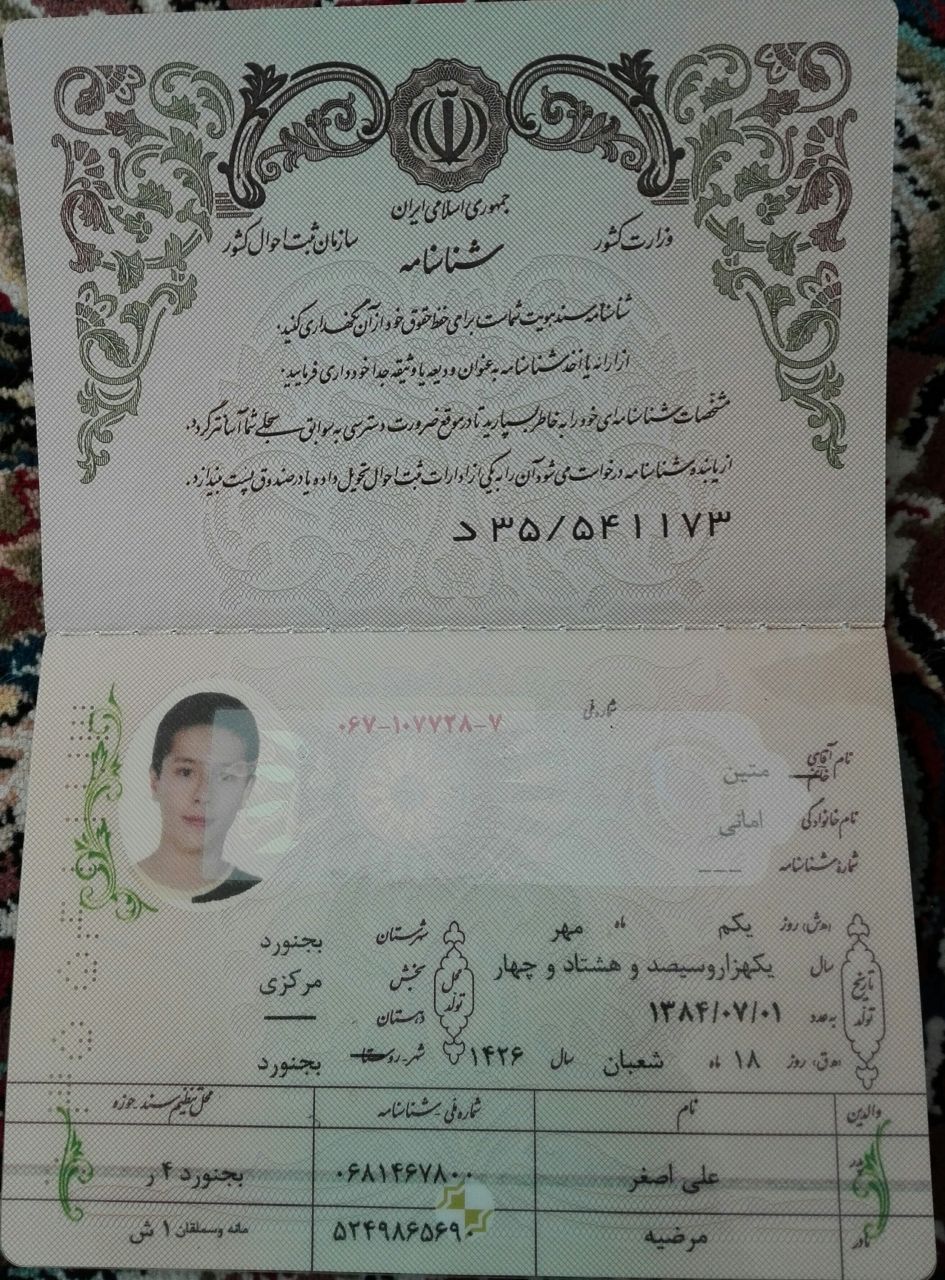 جمهوری اسلامی ایران
وزارت کشور
سازمان ثبت احوال کشور
شناسنامه
شناسنامه سند هویت شماست برای حفظ حقوق خود از آن نگهداری کنید.
از ارائه یا اخذ شناسنامه به عنوان ودیعه یا وثیقه جدا خودداری فرمایید.
مشخصات شناسنامه‌ای خود را به خاطر بسپارید تا در موقع ضرورت دسترسی به سوابق سجلی شما آسانتر گردد.
از یابنده شناسنامه درخواست می‌شود آن را به یکی از ادارات ثبت احوال تحویل داده یا در صندوق پست بیندازد.
د ۳۵/۵۴۱۱۷۳
شماره ملی ۰۶۷-۱۰۷۷۲۸-۷
نام آقای خانم متین
نام خانوادگی امانی
شماره شناسنامه ---
تاریخ تولد
(ه.ش) روز یکم ماه مهر
سال یکهزاروسیصد و هشتاد و چهار
به عدد ۱۳۸۴/۰۷/۰۱
(ه.ق) روز ۱۸ ماه شعبان سال ۱۴۲۶
محل تولد
شهرستان بجنورد
بخش مرکزی
دهستان ——
شهر-روستا بجنورد
والدین نام شماره ملی-شناسنامه محل تنظیم سند-حوزه
پدر علی اصغر ۰۶۸۱۴۶۷۸۰۰ بجنورد ۴ ر
مادر مرضیه ۵۲۴۹۸۶۵۶۹۰ مانه وسملقان ۱ ش